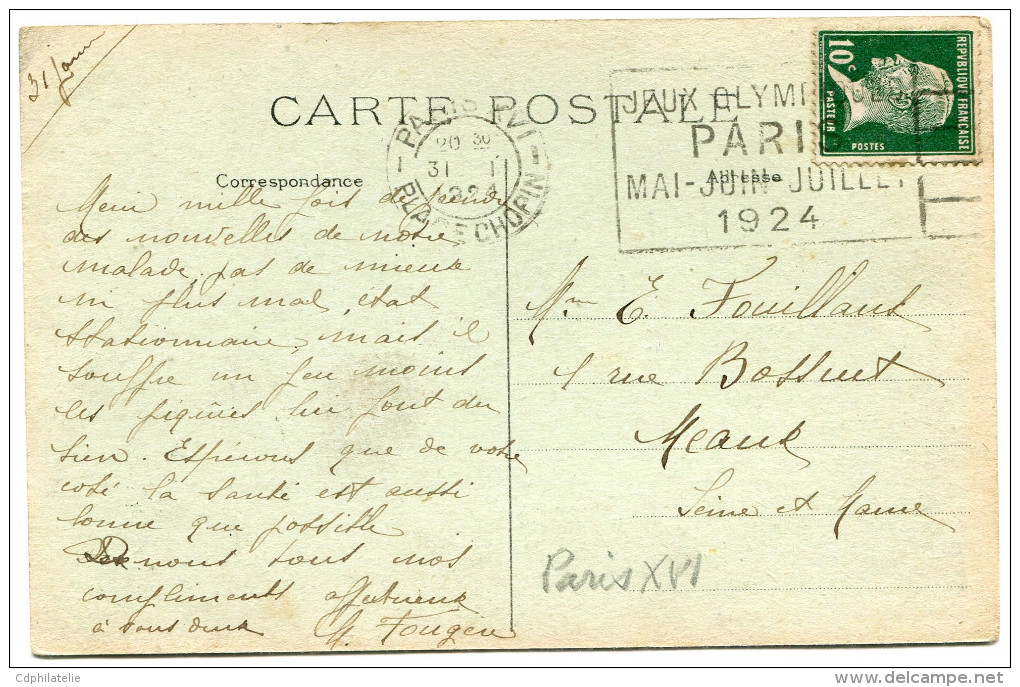 31 Janv
CARTE POSTALE
PARIS XVI
20 30
31 1
1924
PLACE CHOPIN
JEUX OLYMPIQUES
PARIS
MAI-JUIN-JUILLET
1924
10c
REPVBLIQVE FRANÇAISE
PASTEUR
POSTES
Correspondance
Adresse
Merci mille fois de
des nouvelles de notre
malade, pas de mieux
ni plus mal, état
stationnaire, mais il
souffre un peu moins
les piqûres lui font du
bien. Espérons que de votre
coté la santé est aussi
bonne que possible
nous tous nos
compliments affectueux
à tous deux M. Fougère
Mme E. Fouillaux
1 rue Bossuet
Meaux
Seine et Marne
Paris XVI
Cdphilatelie
www.delcampe.net